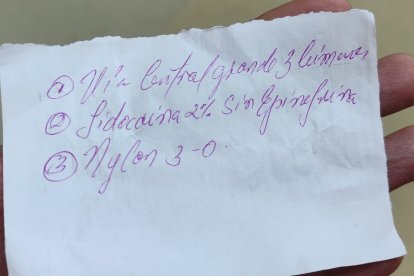 ① Via Central grande 3 lúmenes
② Lidocaina 2% Sin Epinefrina
③ Nylon 3-0.